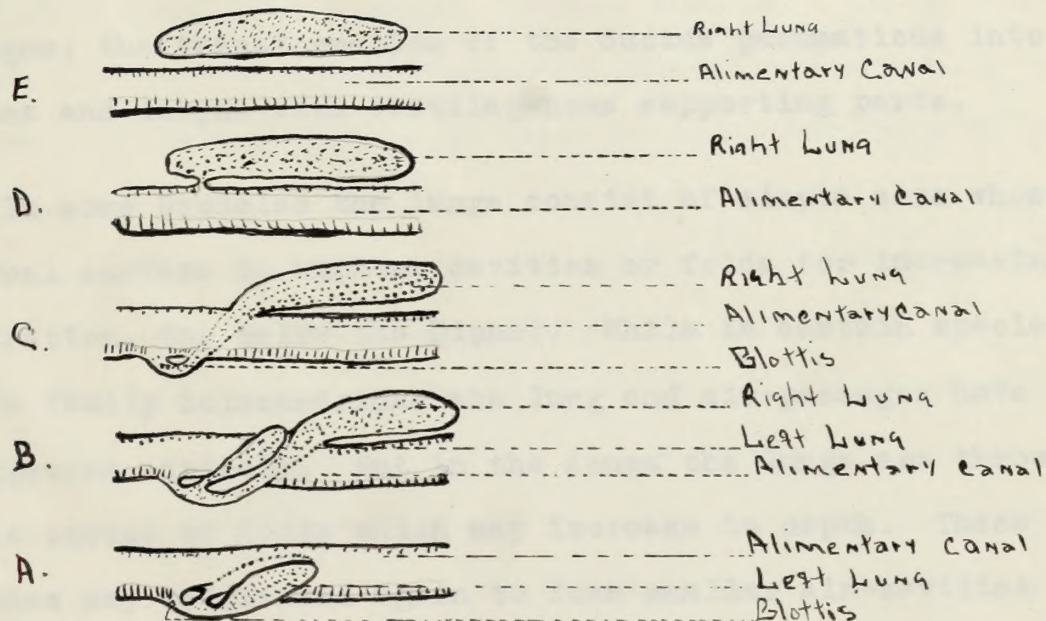 E. Right Lung
Alimentary Canal
D. Right Lung
Alimentary Canal
C. Right Lung
Alimentary Canal
Blottis
B Right Lung
Left Lung
Alimentary Canal
A. Alimentary Canal
Left Lung
Blottis